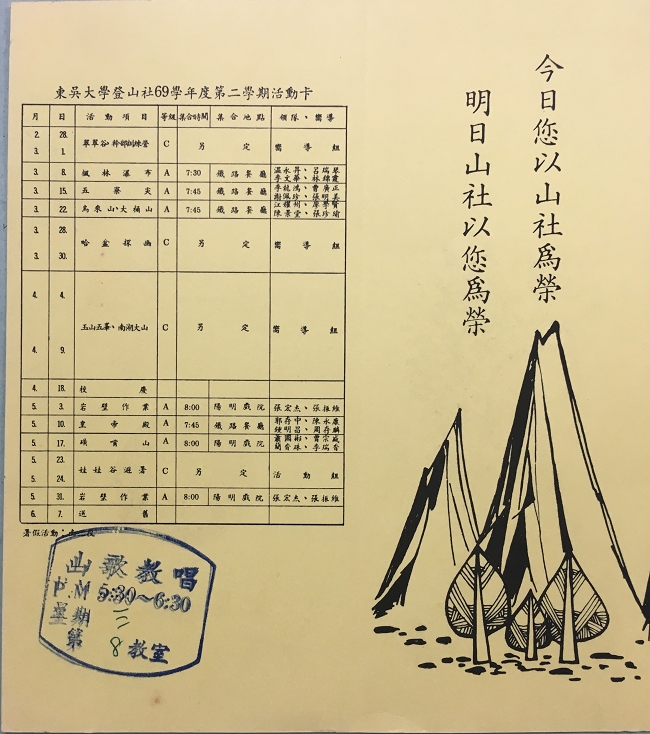 今日您以山社爲榮
明日山社以您爲榮
東吳大學登山社69學年度第二學期活動卡
月 日 活動項目 等級 集合時間 集合地點 領隊、嚮導
2. 28. 3. 1. 翠翠谷・幹部訓練營 C 另定 嚮導組
3. 8. 楓林瀑布 A 7:30 鐵路餐廳 溫永昇、呂瑞琴
李文華、林錦霞
3. 15. 五寮尖 A 7:45 鐵路餐廳 李龍鴻、曹廣正
謝佩珍、張明美
3. 22. 烏來山、大桶山 A 7:45 鐵路餐廳 江耀州、廖學賢
陳景堂、張珍瑜
3. 28. 3. 30. 哈盆探幽 C 另定 嚮導組
4. 4. 4. 9. 玉山五峯、南湖大山 C 另定 嚮導組
4. 18. 校慶
5. 3. 岩壁作業 A 8:00 陽明戲院 張宏杰、張振維
5. 10. 皇帝殿 A 7:45 鐵路餐廳 郭存中、陳永康
鍾明昌、周存麟
5. 17. 磺嘴山 A 8:00 陽明戲院 蕭國彬、曹宗威
簡香珠、李瑞香
5. 23. 5. 24. 娃娃谷避暑 C 另定 活動組
5. 31. 岩壁作業 A 8:00 陽明戲院 張宏杰、張振維
6. 7. 送舊
暑假活動：
山歌教唱
P.M 5:30～6:30
星期二
第8教室